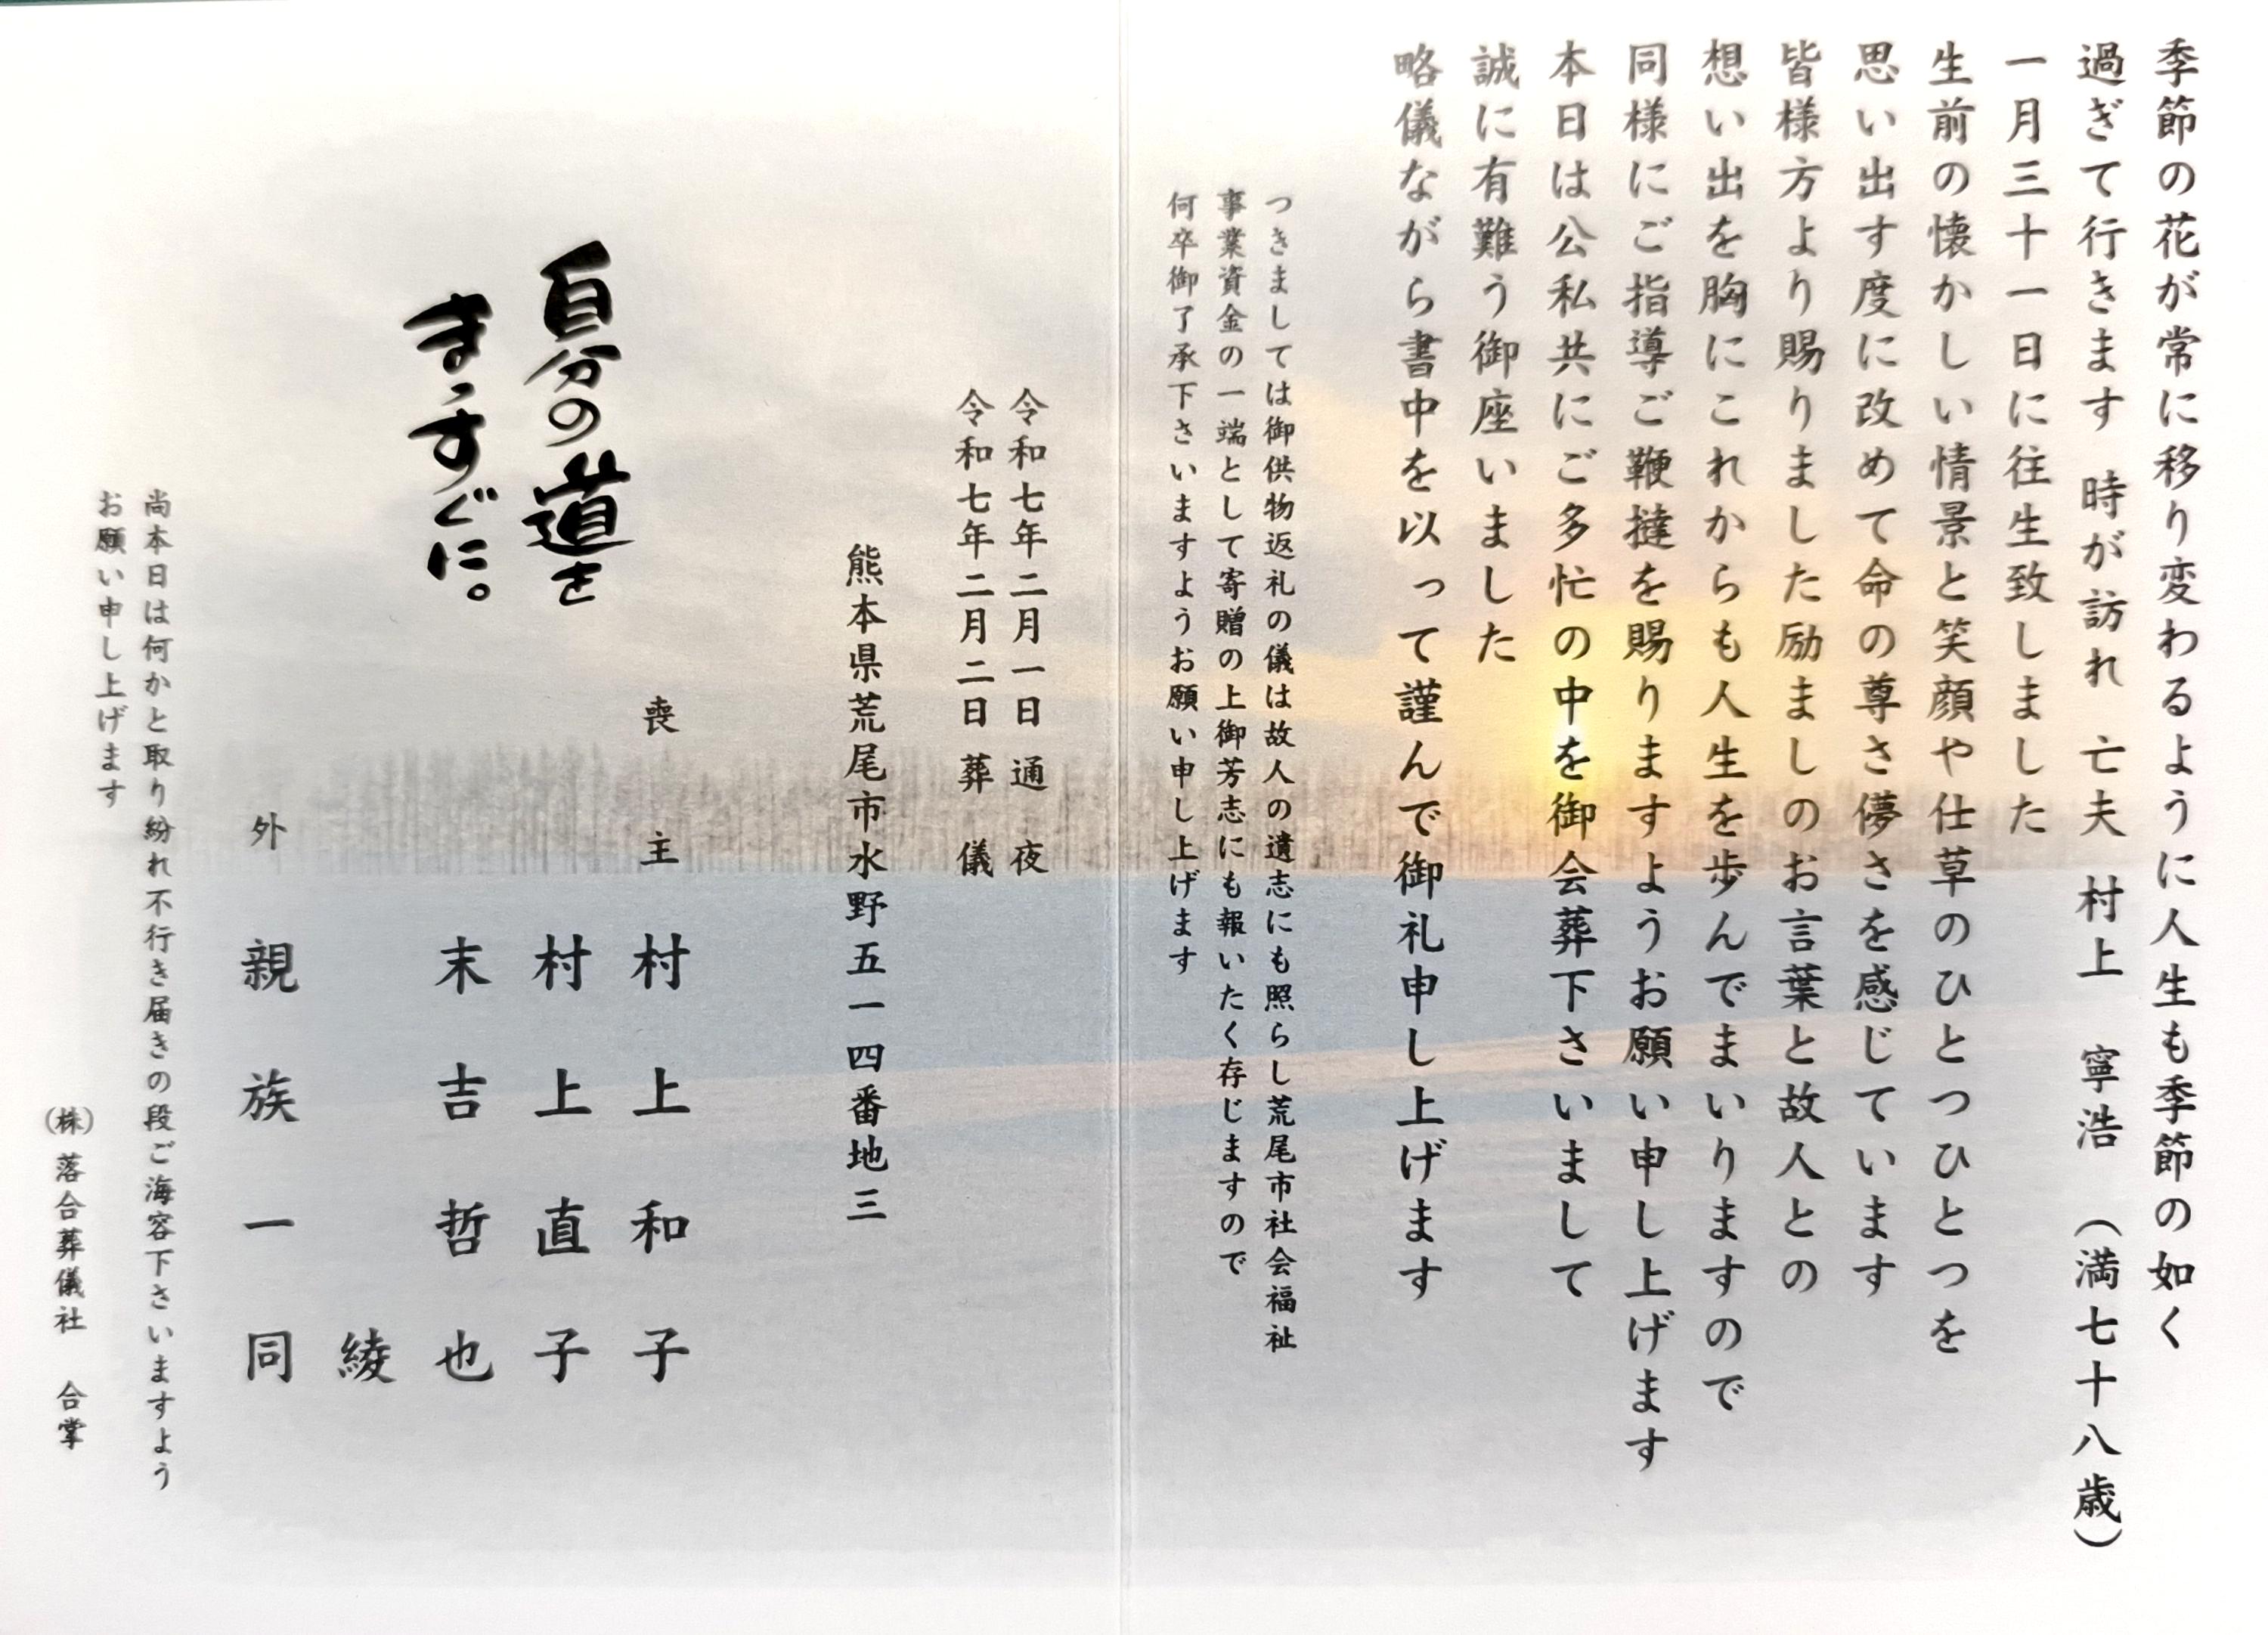 季節の花が常に移り変わるように人生も季節の如く
過ぎて行きます 時が訪れ 亡夫 村上 寧浩 (満七十八歳)
一月三十一日に往生致しました
生前の懐かしい情景と笑顔や仕草のひとつひとつを
思い出す度に改めて命の尊さ儚さを感じています
皆様方より賜りました励ましのお言葉と故人との
想い出を胸にこれからも人生を歩んでまいりますので
同様にご指導ご鞭撻を賜りますようお願い申し上げます
本日は公私共にご多忙の中を御会葬下さいまして
誠に有難う御座いました
略儀ながら書中を以って謹んで御礼申し上げます
つきましては御供物返礼の儀は故人の遺志にも照らし荒尾市社会福祉
事業資金の一端として寄贈の上御芳志にも報いたく存じますので
何卒御了承下さいますようお願い申し上げます
令和七年二月一日 通夜
令和七年二月二日 葬儀
熊本県荒尾市水野五一四番地三
喪主 村上和子
村上直子
末吉哲也
綾
外 親族一同
自分の道を
まっすぐに。
尚本日は何かと取り紛れ不行き届きの段ご海容下さいますよう
お願い申し上げます
(株)落合葬儀社 合掌